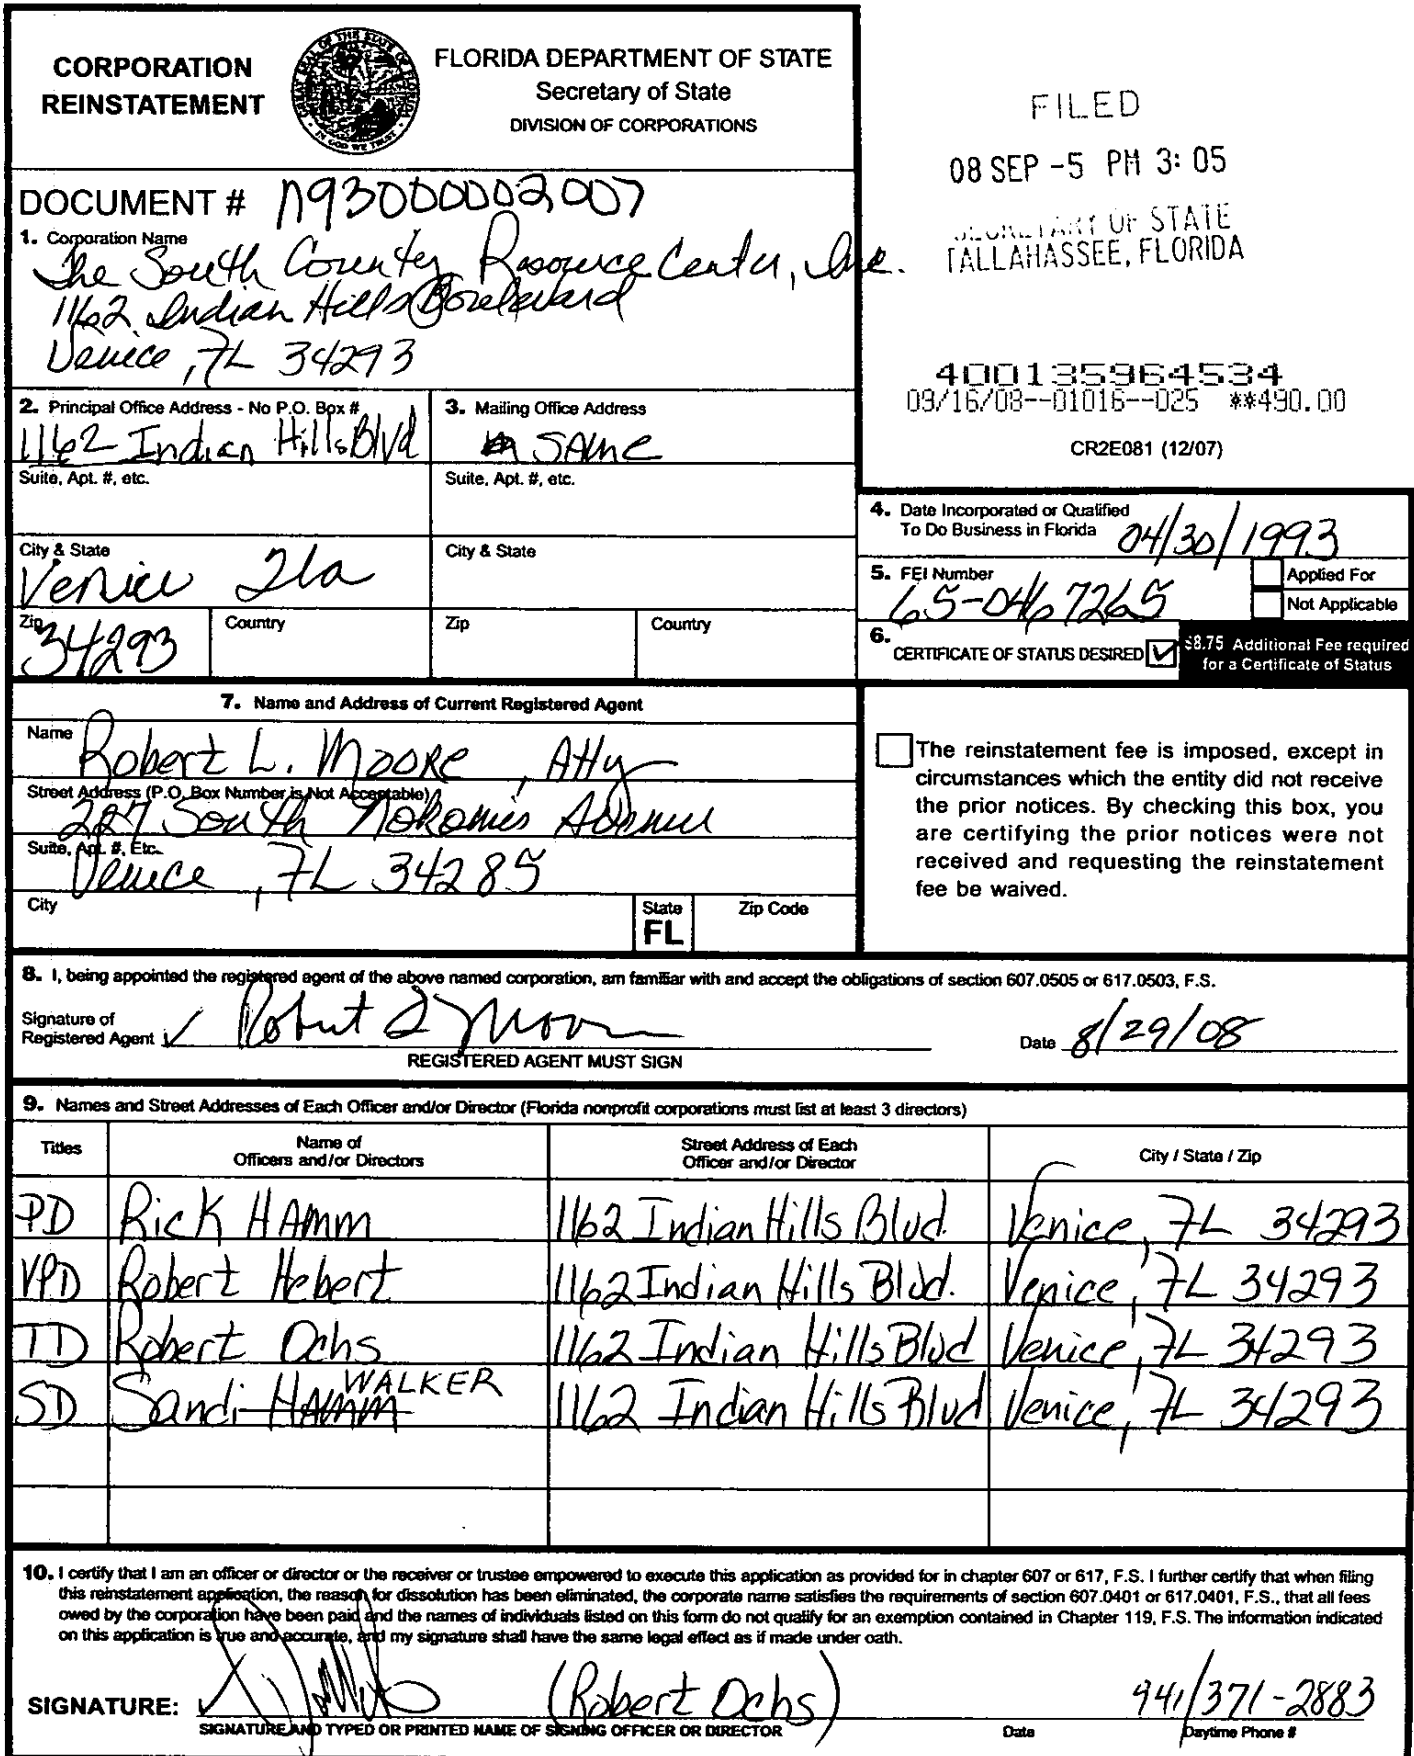 CORPORATION
REINSTATEMENT
FLORIDA DEPARTMENT OF STATE
Secretary of State
DIVISION OF CORPORATIONS
FILED
08 SEP -5 PM 3:05
SECRETARY OF STATE
TALLAHASSEE, FLORIDA
DOCUMENT # N93000002007
1. Corporation Name
The South County Resource Center, Inc.
1162 Indian Hills Boulevard
Venice, FL 34293
400135964534
09/16/08--01016--025 **490.00
CR2E081 (12/07)
2. Principal Office Address - No P.O. Box #
1162 Indian Hills Blvd
3. Mailing Office Address
SAme
Suite, Apt. #, etc.
Suite, Apt. #, etc.
City & State
Venice Fla
City & State
Zip
34293
Country
Zip
Country
4. Date Incorporated or Qualified
To Do Business in Florida 04/30/1993
5. FEI Number
65-0467265
Applied For
Not Applicable
6. CERTIFICATE OF STATUS DESIRED
$8.75 Additional Fee required
for a Certificate of Status
7. Name and Address of Current Registered Agent
Name
Robert L. Moore, Atty
Street Address (P.O. Box Number is Not Acceptable)
227 South Nokomis Avenue
Suite, Apt. #, Etc.
Venice, FL 34285
City
State
FL
Zip Code
The reinstatement fee is imposed, except in
circumstances which the entity did not receive
the prior notices. By checking this box, you
are certifying the prior notices were not
received and requesting the reinstatement
fee be waived.
8. I, being appointed the registered agent of the above named corporation, am familiar with and accept the obligations of section 607.0505 or 617.0503, F.S.
Signature of
Registered Agent Robert L Moore
Date 8/29/08
REGISTERED AGENT MUST SIGN
9. Names and Street Addresses of Each Officer and/or Director (Florida nonprofit corporations must list at least 3 directors)
Titles
Name of
Officers and/or Directors
Street Address of Each
Officer and/or Director
City / State / Zip
PD Rick HAmm 1162 Indian Hills Blvd. Venice, FL 34293
VPD Robert Hebert 1162 Indian Hills Blvd. Venice, FL 34293
TD Robert Ochs 1162 Indian Hills Blvd Venice, FL 34293
WALKER
SD Sandi HAmm 1162 Indian Hills Blvd Venice, FL 34293
10. I certify that I am an officer or director or the receiver or trustee empowered to execute this application as provided for in chapter 607 or 617, F.S. I further certify that when filing
this reinstatement application, the reason for dissolution has been eliminated, the corporate name satisfies the requirements of section 607.0401 or 617.0401, F.S., that all fees
owed by the corporation have been paid and the names of individuals listed on this form do not qualify for an exemption contained in Chapter 119, F.S. The information indicated
on this application is true and accurate, and my signature shall have the same legal effect as if made under oath.
SIGNATURE: (Robert Ochs) 941/371-2883
SIGNATURE AND TYPED OR PRINTED NAME OF SIGNING OFFICER OR DIRECTOR
Date
Daytime Phone #